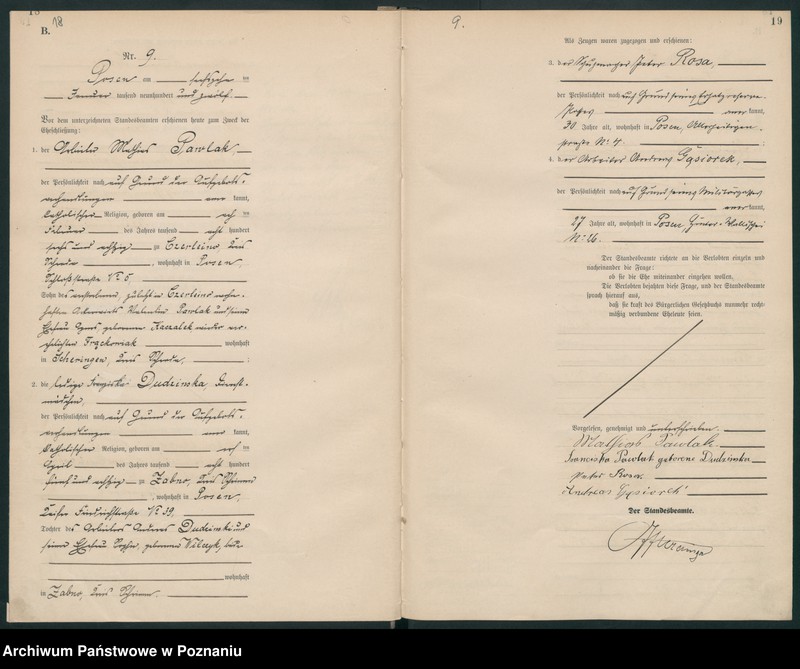 18
B.
Nr. 9.
Posen am sechsten
Januar tausend neunhundert und zwölf
Vor dem unterzeichneten Standesbeamten erschienen heute zum Zweck der
Eheschließung:
1. der Arbeiter Mathias Pawlak,
der Persönlichkeit nach auf Grund der Aufgebots-
verhandlungen kannt,
katholischer Religion, geboren am
Februar des Jahres tausend acht hundert
sechs und achtzig zu Czerleino, Kreis
Schroda, wohnhaft in Posen,
Schloßstraße No 5,
Sohn des verstorbenen, zuletzt in Czerleino wohn-
haften Valentin Pawlak und seiner
Ehefrau Agnes geborenen Kaczalek wieder ver-
ehelichten Frąckowiak wohnhaft
in Scheringen, Kreis Schroda,
2. die ledige Franziska Dudzinska, Dienst-
mädchen,
der Persönlichkeit nach auf Grund der Aufgebots-
verhandlungen kannt,
katholischer Religion, geboren am
April des Jahres tausend acht hundert
fünf und achtzig zu Zabno, Kreis Schrimm
, wohnhaft in Posen,
Kaiser Friedrichstraße No 39,
Tochter des Arbeiters Andreas Dudzinski und
seiner Ehefrau Sophie, geborenen Walczyk, beide
wohnhaft
in Zabno, Kreis Schrimm.
9.
19
Als Zeugen waren zugezogen und erschienen:
3. der Schuhmacher Peter Rosa,
der Persönlichkeit nach auf Grund seines Ersatzreserve-
Passes kannt,
30 Jahre alt, wohnhaft in Posen, Allerheiligen-
straße No 4.
4. der Arbeiter Andreas Gąsiorek,
der Persönlichkeit nach auf Grund seines Militärpasses
kannt,
27 Jahre alt, wohnhaft in Posen, Hinter-Wallischei
No 26.
Der Standesbeamte richtete an die Verlobten einzeln und
nacheinander die Frage:
ob sie die Ehe miteinander eingehen wollen.
Die Verlobten bejahten diese Frage, und der Standesbeamte
sprach hierauf aus,
daß sie kraft des Bürgerlichen Gesetzbuchs nunmehr recht-
mäßig verbundene Eheleute seien.
Vorgelesen, genehmigt und unterschrieben.
Pawlak
Franciska Pawlak geborene Dudzinska
Peter Rosa
Andreas Gąsiorek
Der Standesbeamte.
Archiwum Państwowe w Poznaniu